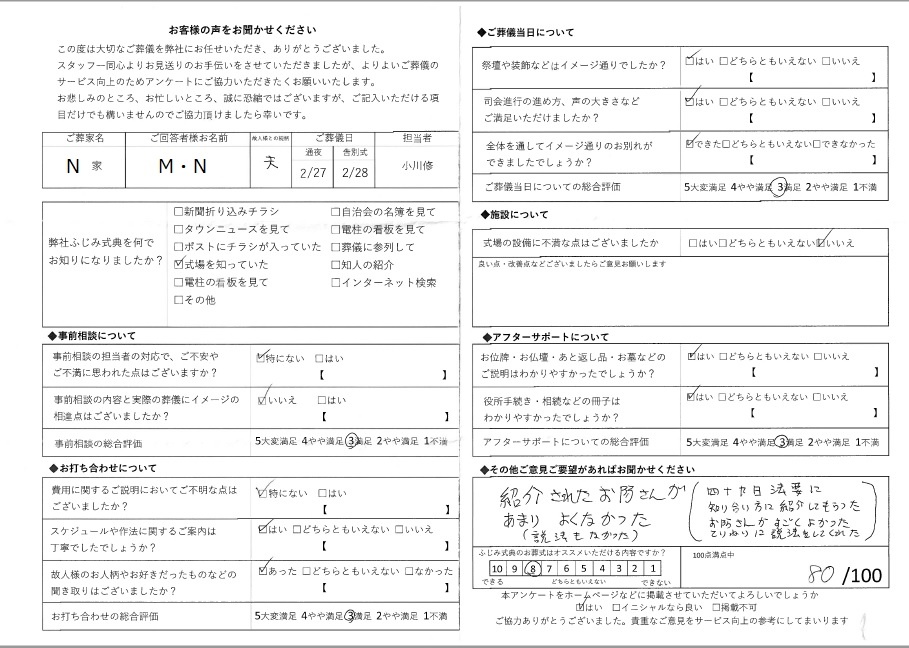 お客様の声をお聞かせください
この度は大切なご葬儀を弊社にお任せいただき、ありがとうございました。
スタッフ一同心よりお見送りのお手伝いをさせていただきましたが、よりよいご葬儀の
サービス向上のためアンケートにご協力いただきたくお願いいたします。
お悲しみのところ、お忙しいところ、誠に恐縮ではございますが、ご記入いただける項
目だけでも構いませんのでご協力頂けましたら幸いです。
ご葬家名 ご回答者様お名前 故人様との続柄 ご葬儀日 担当者
通夜 告別式
N 家 M・N 夫 2/27 2/28 小川修
弊社ふじみ式典を何で
お知りになりましたか？
□新聞折り込みチラシ □自治会の名簿を見て
□タウンニュースを見て □電柱の看板を見て
□ポストにチラシが入っていた □葬儀に参列して
☑式場を知っていた □知人の紹介
□電柱の看板を見て □インターネット検索
□その他
◆事前相談について
事前相談の担当者の対応で、ご不安や
ご不満に思われた点はございますか？
☑特にない □はい
【 】
事前相談の内容と実際の葬儀にイメージの
相違点はございましたか？
☑いいえ □はい
【 】
事前相談の総合評価 5大変満足 4やや満足 ③満足 2やや満足 1不満
◆お打ち合わせについて
費用に関するご説明においてご不明な点は
ございましたか？
☑特にない □はい
【 】
スケジュールや作法に関するご案内は
丁寧でしたでしょうか？
☑はい □どちらともいえない □いいえ
【 】
故人様のお人柄やお好きだったものなどの
聞き取りはございましたか？
☑あった □どちらともいえない □なかった
【 】
お打ち合わせの総合評価 5大変満足 4やや満足 ③満足 2やや満足 1不満
◆ご葬儀当日について
祭壇や装飾などはイメージ通りでしたか？
☑はい □どちらともいえない □いいえ
【 】
司会進行の進め方、声の大きさなど
ご満足いただけましたか？
☑はい □どちらともいえない □いいえ
【 】
全体を通してイメージ通りのお別れが
できましたでしょうか？
☑できた□どちらともいえない□できなかった
【 】
ご葬儀当日についての総合評価 5大変満足 4やや満足 ③満足 2やや満足 1不満
◆施設について
式場の設備に不満な点はございましたか □はい□どちらともいえない☑いいえ
良い点・改善点などございましたらご意見お願いします
◆アフターサポートについて
お位牌・お仏壇・あと返し品・お墓などの
ご説明はわかりやすかったでしょうか？
☑はい □どちらともいえない □いいえ
【 】
役所手続き・相続などの冊子は
わかりやすかったでしょうか？
☑はい □どちらともいえない □いいえ
【 】
アフターサポートについての総合評価 5大変満足 4やや満足 ③満足 2やや満足 1不満
◆その他ご意見ご要望があればお聞かせください
紹介されたお坊さんが
あまりよくなかった
(説法もなかった)
(四十九日法要に
知り合い方に紹介してもらった
お坊さんがすごくよかった
ていねいに説法をしてくれた)
ふじみ式典のお葬式はオススメいただける内容ですか？
10 9 ⑧ 7 6 5 4 3 2 1
できる どちらともいえない できない
100点満点中
80 /100
本アンケートをホームページなどに掲載させていただいてよろしいでしょうか
☑はい □イニシャルなら良い □掲載不可
ご協力ありがとうございます。貴重なご意見をサービス向上の参考にしてまいります